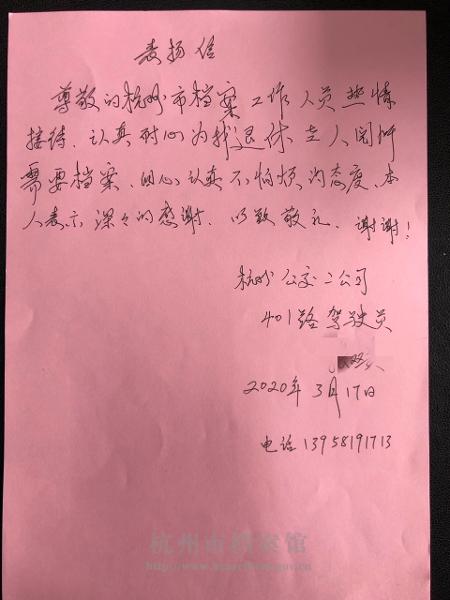 表扬信
尊敬的杭州市档案工作人员热情
接待、认真耐心为我退休本人阅所
需要档案、用心认真不怕烦的态度、本
人表示深々的感谢. 以致敬礼. 谢谢!
杭州公交二公司
401路驾驶员
2020年3月17日
电话13958191713
杭州市档案馆